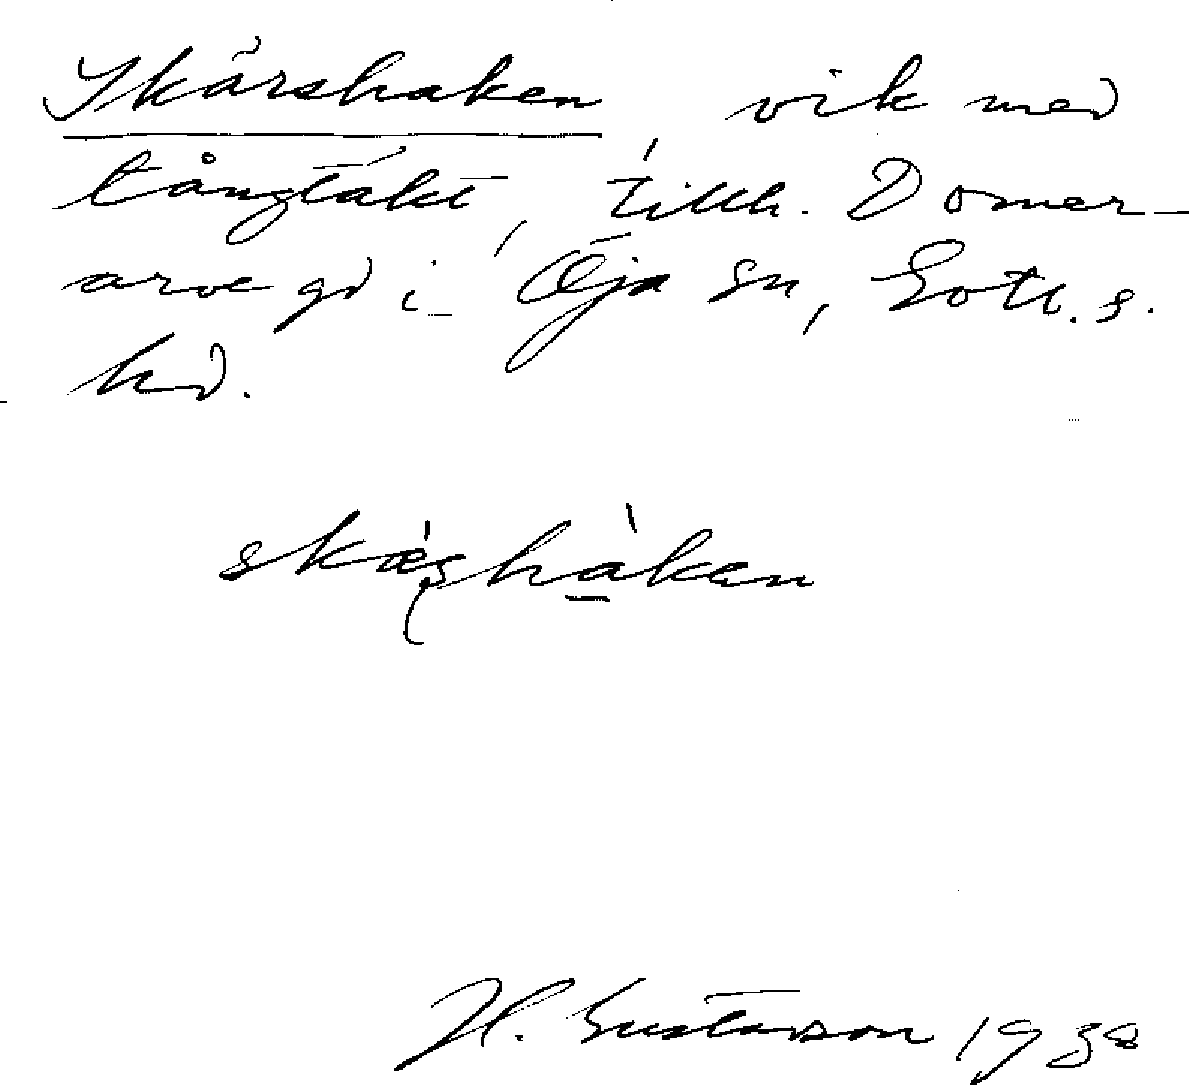 Skärshaken, vik med
tångtäkt, tillh. Domer-
arve gd i Öja sn, Gotl. s.
hd.
skæʂhàken
H. Gustavson 1938